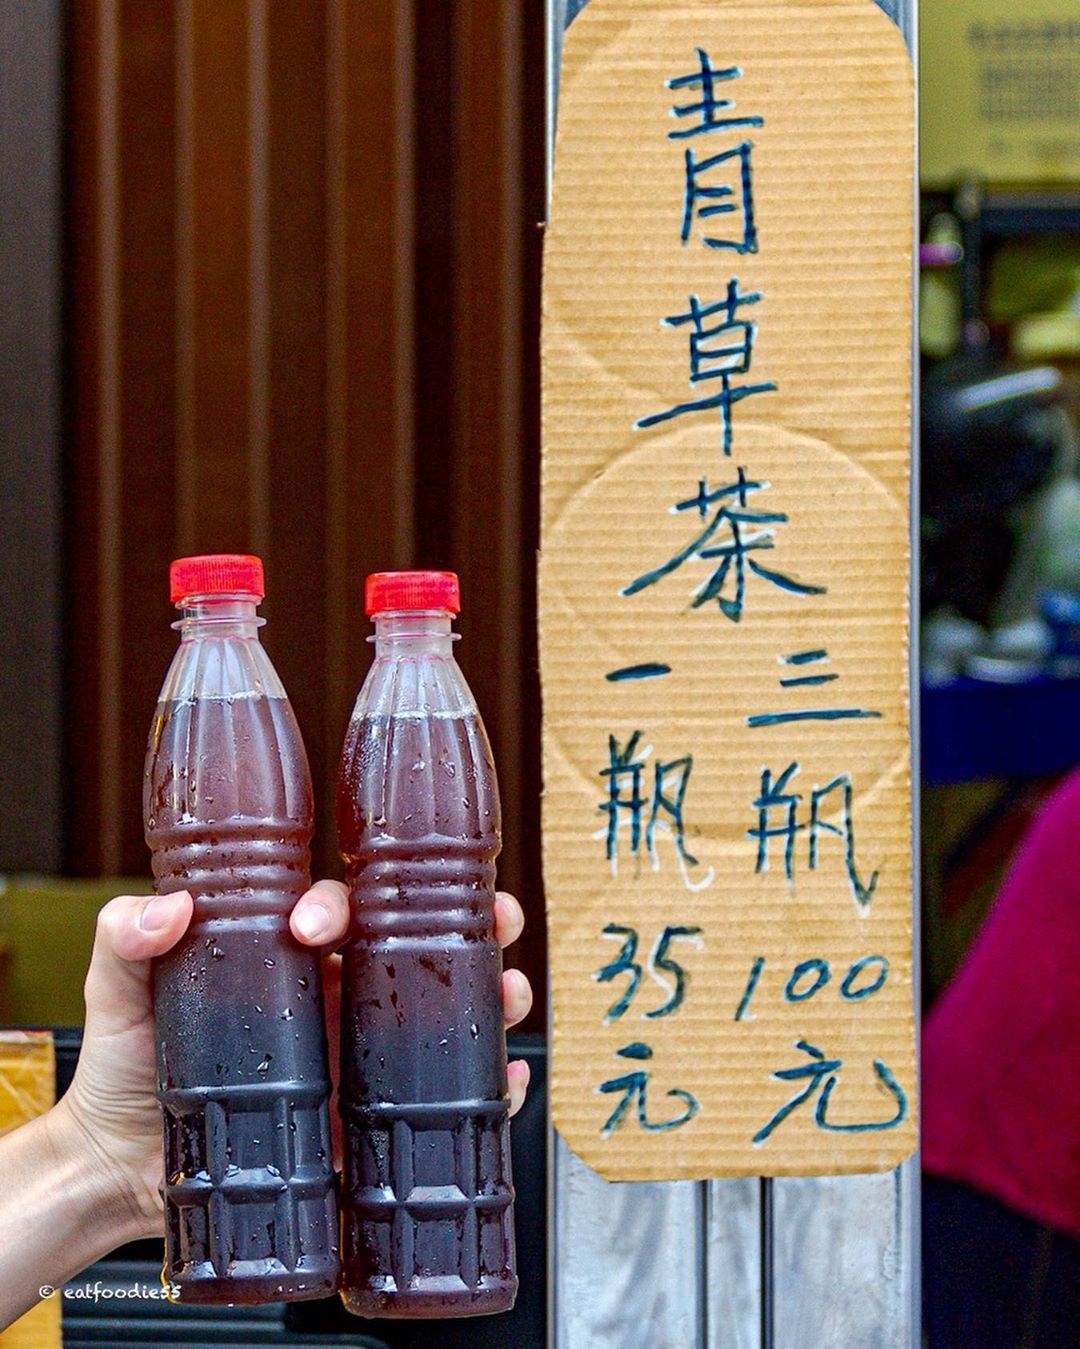 青草茶
三瓶100元
一瓶35元
© eatfoodie55